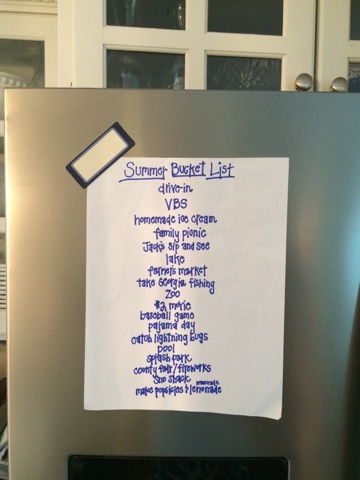 Summer Bucket List
drive-in
VBS
homemade ice cream
family picnic
Jack's sip and see
lake
farmer's market
take Georgia fishing
Zoo
$2 movie
baseball game
pajama day
catch lightning bugs
pool
splash park
county fair/fireworks
Sno shack
homemade
make popsicles & lemonade